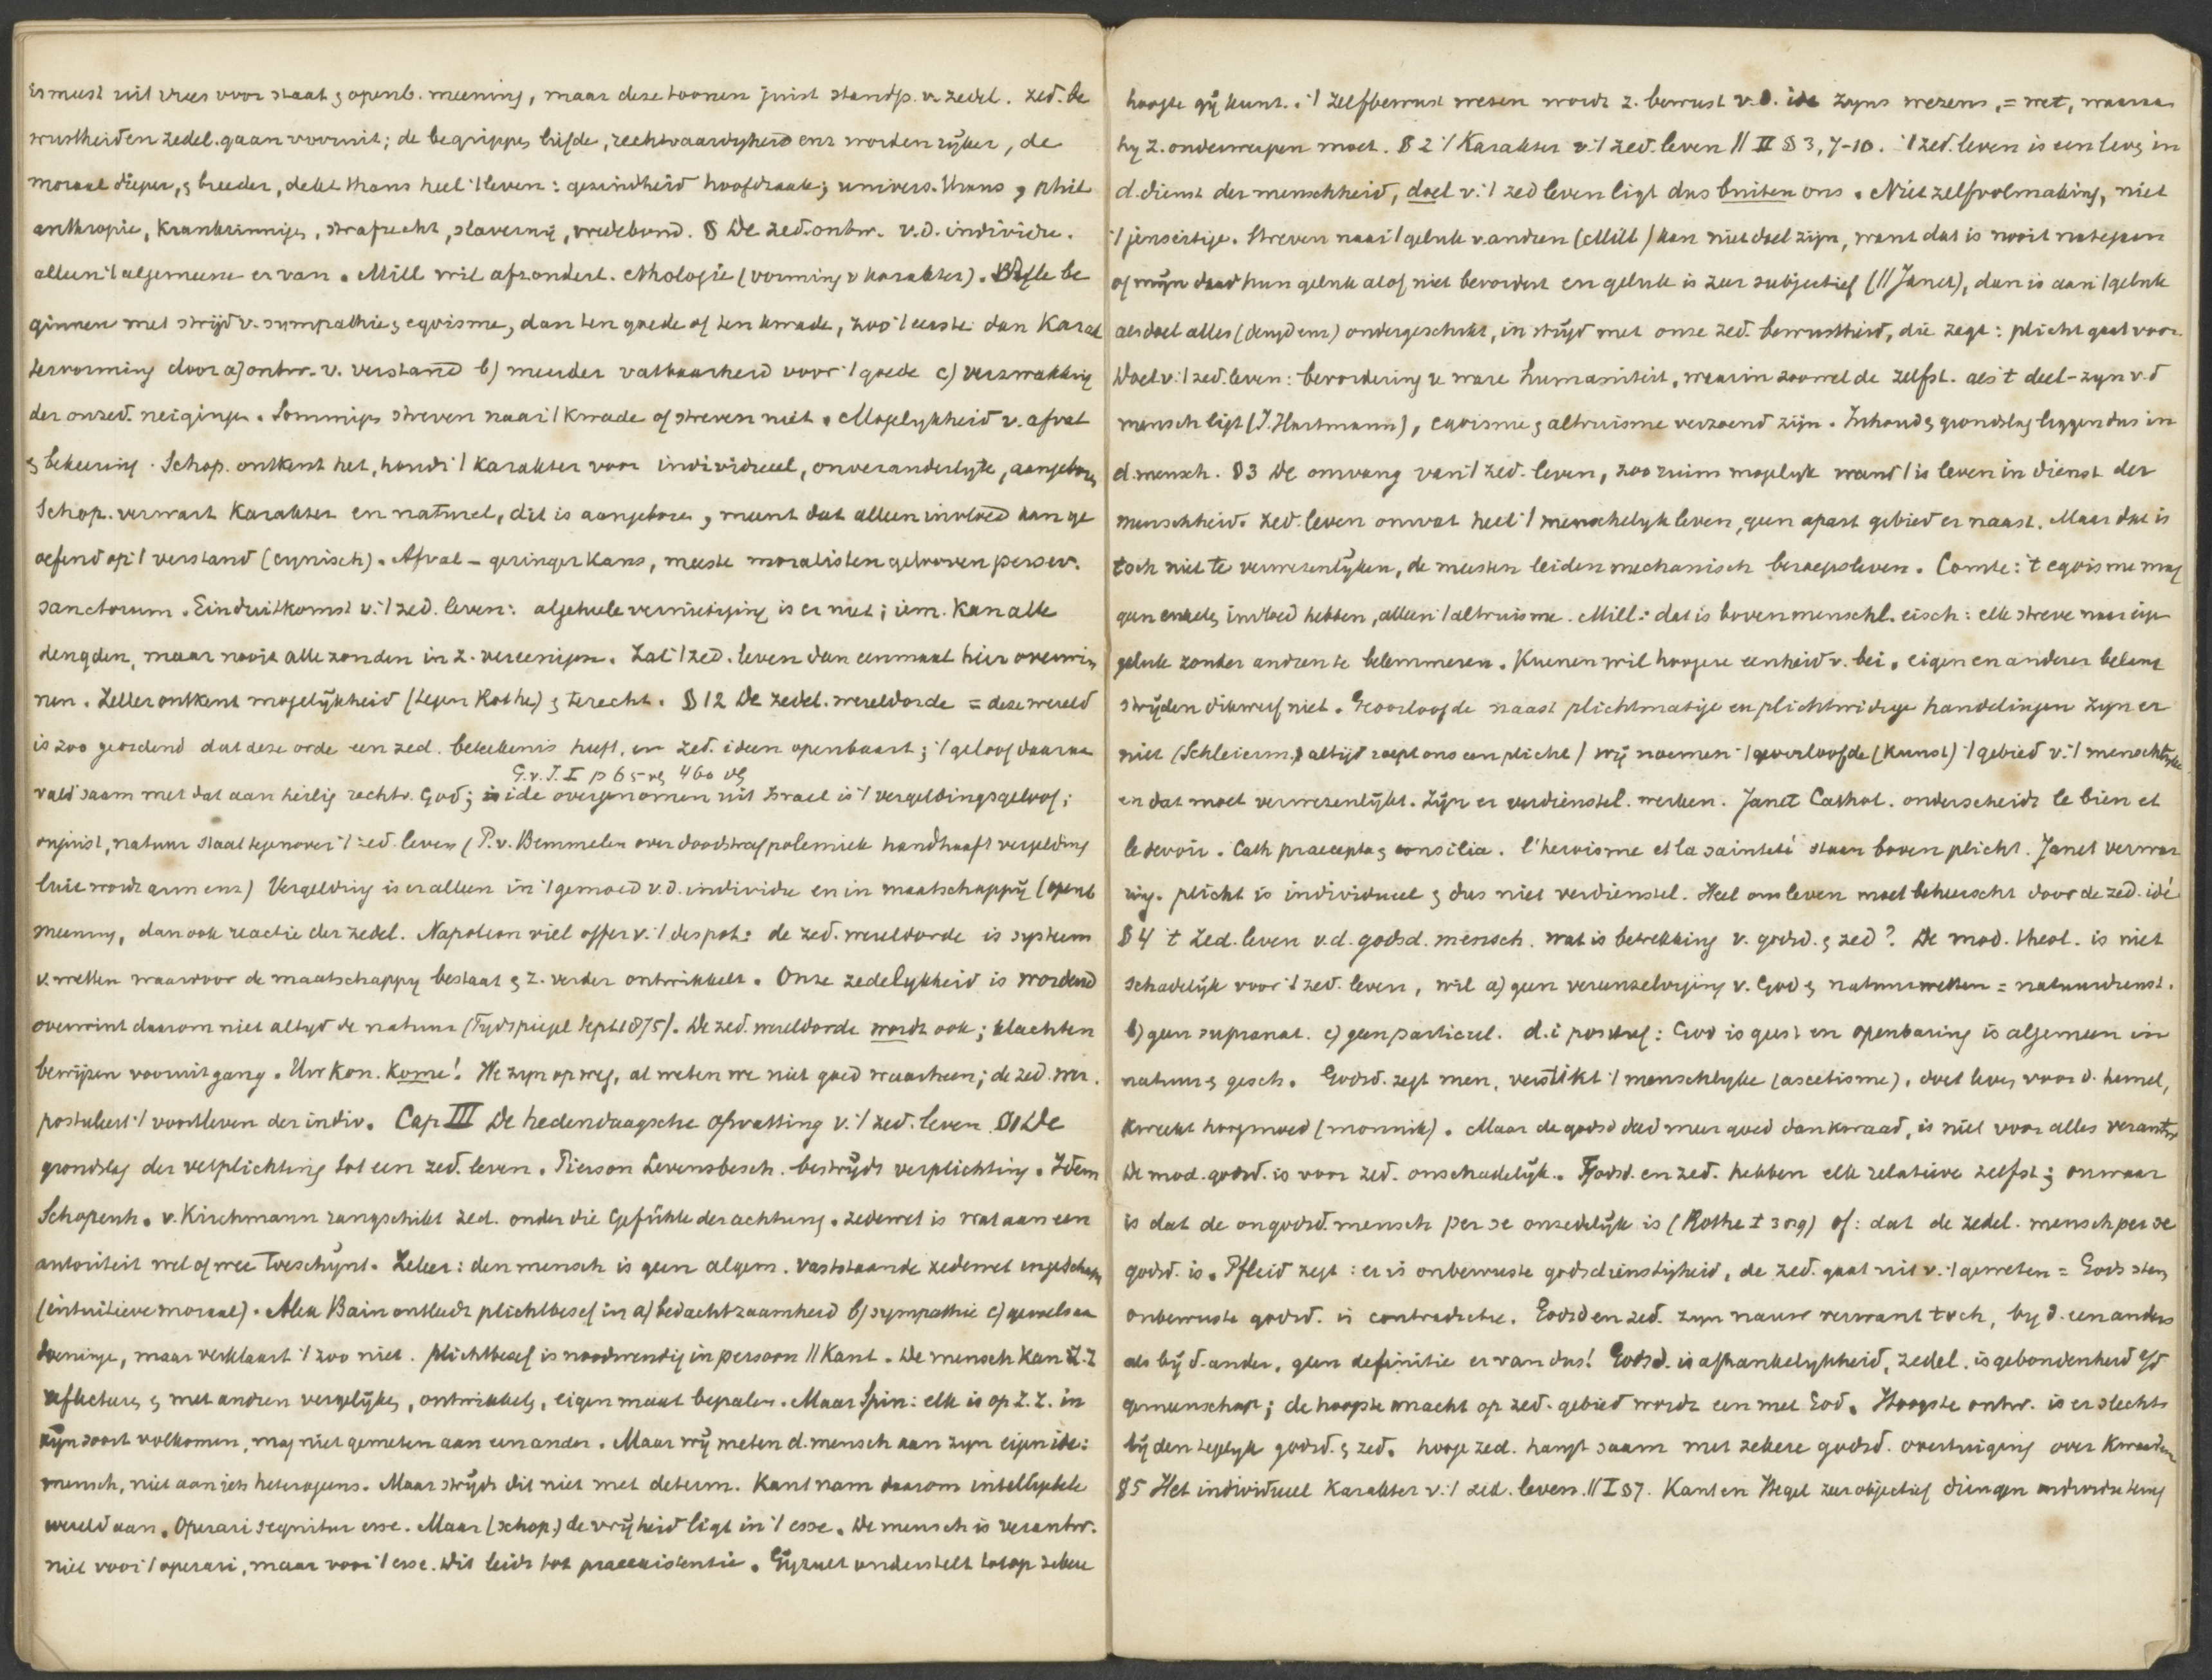 is meest uit vrees voor staat & openb. meening, maar deze toonen juist standp. v. zedel. zed. be
wustheid en zedel. gaan vooruit; de begrippen liefde, rechtvaardigheid enz worden rijker, de
moraal dieper, & breeder, dekt thans heel 't leven: gezindheid hoofdzaak; univers. thans, phil
anthropie, krankzinnigen, strafrecht, slavernij, vredebond. § De zed. ontw. v.d. individu.
alleen 't algemeene er van. Mill wil afzonderl. ethologie (vorming v karakter). Alle be
ginnen met strijd v. sympathie & egoisme, dan ten goede of ten kwade, zoo 't eerste dan Karak
tervorming door a) ontw. v. verstand b) meerder vatbaarheid voor 't goede c) verzwakking
der onzed. neigingen. Sommigen streven naar 't kwade of streven niet. Mogelykheid v. afval
& bekeering. Schop. ontkent het, houdt 't karakter voor individueel, onveranderlyk, aangeboren
Schop. verwart karakter en naturel, dit is aangeboren, meent dat alleen invloed kan ge
oefend op 't verstand (cynisch). Afval – geringer kans, meeste moralisten gelooven persev.
sanctorum. Einduitkomst v. 't zed. leven: algeheele vernietiging is er niet; iem. kan alle
deugden, maar nooit alle zonden in z. vereenigen. Zal 't zed. leven dan eenmaal hier overwin
nen. Zeller ontkent mogelijkheid (tegen Rothe) & terecht. § 12 De zedel. wereldorde = deze wereld
is zoo geordend dat deze orde een zed. beteekenis heeft, en zed. ideen openbaart; 't geloof daaraan
G.v.I. I p 65 vg 460 vg
valt saam met dat aan heilig rechtv. God; ide overgenomen uit Israel is 't vergeldingsgeloof;
onjuist, natuur staat tegenover 't zed. leven (P. v. Bemmelen over doodstrafpolemiek handhaaft vergelding
luie wordt arm enz) Vergelding is er alleen in 't gemoed v.d. individu en in maatschappij (openb
meening, dan ook reactie der zedel. Napoleon viel offer v. 't despot: de zed. wereldorde is systeem
v. wetten waarvoor de maatschappy bestaat & z. verder ontwikkelt. Onze zedelykheid is wordend
overwint daarom niet altyd de natuur (Tydspiegel Sept 1875). De zed. wereldorde wordt ook; klachten
bewijzen vooruitgang. Uw Kon. Kome! We zyn op weg, al weten we niet goed waarheen; de zed. wer.
postuleert 't voortleven der indiv. Cap III De hedendaagsche opvatting v. 't zed. leven §1 De
grondslag der verplichting tot een zed. leven. Pierson Levensbesch. bestrijdt verplichting. Idem
Schopenh. v. Kirchmann rangschikt zed. onder die Gefühle der achtung. zedewet is wat aan een
autoriteit wel of wee toeschynt. Zeker: den mensch is geen algem. vaststaande zedewet ingeschapen
(intuitieve moraal). Alex Bain ontleedt plichtbesef in a) bedachtzaamheid b) sympathie c) gewelsaan
doeninge, maar verklaart 't zoo niet. plichtbesef is noodwendig in persoon // Kant. De mensch kan z. z
reflecteren & met andren vergelijken, ontwikkelen, eigen maat bepalen. Maar Spin: elk is op z. z. in
zijn soort volkomen, mag niet gemeten aan een ander. Maar wij meten d. mensch aan zyn eigen ide:
mensch, niet aan iets heterogeens. Maar strijdt dit niet met determ. Kant nam daarom intelligibele
wereld aan. Operari sequitur esse. Maar (schop.) de vrijheid ligt in 't esse. De mensch is verantw.
niet voor 't operari, maar voor 't esse. Dit leidt tot praeexistentie. Gijzelf onderstelt tot op zekere
hoogte gij kunt. : 't zelfbewust wezen wordt z. bewust v.d. ide zyns wezens, = wet, waaraan
hy z. onderwerpen moet. § 2 't Karakter v. 't zed. leven // II § 3, 7-10. 't zed. leven is een leven in
d. dienst der menschheid, doel v. 't zed leven ligt dus buiten ons. Niet zelfvolmaking, niet
't jenseitige. Streven naar 't geluk v. andren (Mill) kan niet doel zijn, want dat is nooit nategaan
of mijn daad hun geluk al of niet bevordert en geluk is zeer subjectief (// Janet), dan is aan 't geluk
als doel alles (deugd enz) ondergeschikt, in strijd met onze zed. bewustheid, die zegt: plicht gaat voor.
Doel v. 't zed. leven: bevordering v. ware humaniteit, waarin zoowel de zelfst. als 't deel-zyn v.d
mensch ligt (J. Hartmann), egoisme & altruisme verzoend zijn. Inhoud & grondslag liggen dus in
d. mensch. § 3 De omvang van 't zed. leven, zoo ruim mogelyk want 't is leven in dienst der
menschheid. Zed. leven omvat heel 't menschelyk leven, geen apart gebied er naast. Maar dat is
toch niet te verwezenlyken, de meesten leiden mechanisch beroepsleven. Comte: 't egoisme mag
geen enkele invloed hebben, alleen 't altruisme. Mill: dat is bovenmenschl. eisch: elk streve naar eigen
geluk zonder andren te belemmeren. Kuenen wil hoogere eenheid v. bei. eigen en anderer belang
strijden dikwerf niet. Geoorloofde naast plichtmatige en plichtwidrige handelingen zyn er
niet (Schleierm.) altijd roept ons een plicht) wij noemen 't geoorloofde (kunst) 't gebied v. 't menschlyke
en dat moet verwezenlijkt. Zijn er verdienstel. werken. Janet Cathol. onderscheidt le bien et
le devoir. Cath praecepta & consilia. l'heroisme et la sainteté staan boven plicht. Janet verwar
ring. plicht is individueel & dus niet verdienstel. Heel ons leven moet beheerscht door de zed. idé
§ 4 't Zed. leven v.d. godsd. mensch. wat is betrekking v. godsd. & zed? De mod. theol. is niet
schadelijk voor 't zed. leven, wil a) geen vereenzelviging v. God & natuurwetten = natuurdienst.
b) geen supranat. c) geen particul. d. i positief: God is geest en openbaring is algemeen in
natuur & gesch. Godsd. zegt men, verstikt 't menschlyke (ascetisme), doet leven voor d. hemel,
kweekt hoogmoed (monnik). Maar de godsd deed meer goed dan kwaad, is niet voor alles verantw
De mod. godsd. is voor zed. onschadelijk. Godsd. en zed. hebben elk relatieve zelfst; onwaar
is dat de ongodsd. mensch per se onzedelijk is (Rothe I 309) of: dat de zedel. mensch per se
godsd. is. Pfleid zegt: er is onbewuste godsdienstigheid, de zed. gaat uit v. 't geweten = Gods stem
onbewuste godsd. is contradictie. Godsd en zed. zyn nauw verwant toch, by d. een anders
als bij d. ander, geen definitie er van dus! Godsd. is afhankelykheid, zedel. is gebondenheid a/d
gemeenschap; de hoogste macht op zed. gebied wordt een met God. Hoogste ontw. is er slechts
bij den tegelyk godsd. & zed. hooge zed. hangt saam met zekere godsd. overtuiging over kwaad en
§5 Het individueel Karakter v. 't zed. leven. // I §7. Kant en Hegel zeer objectief dringen individu terug